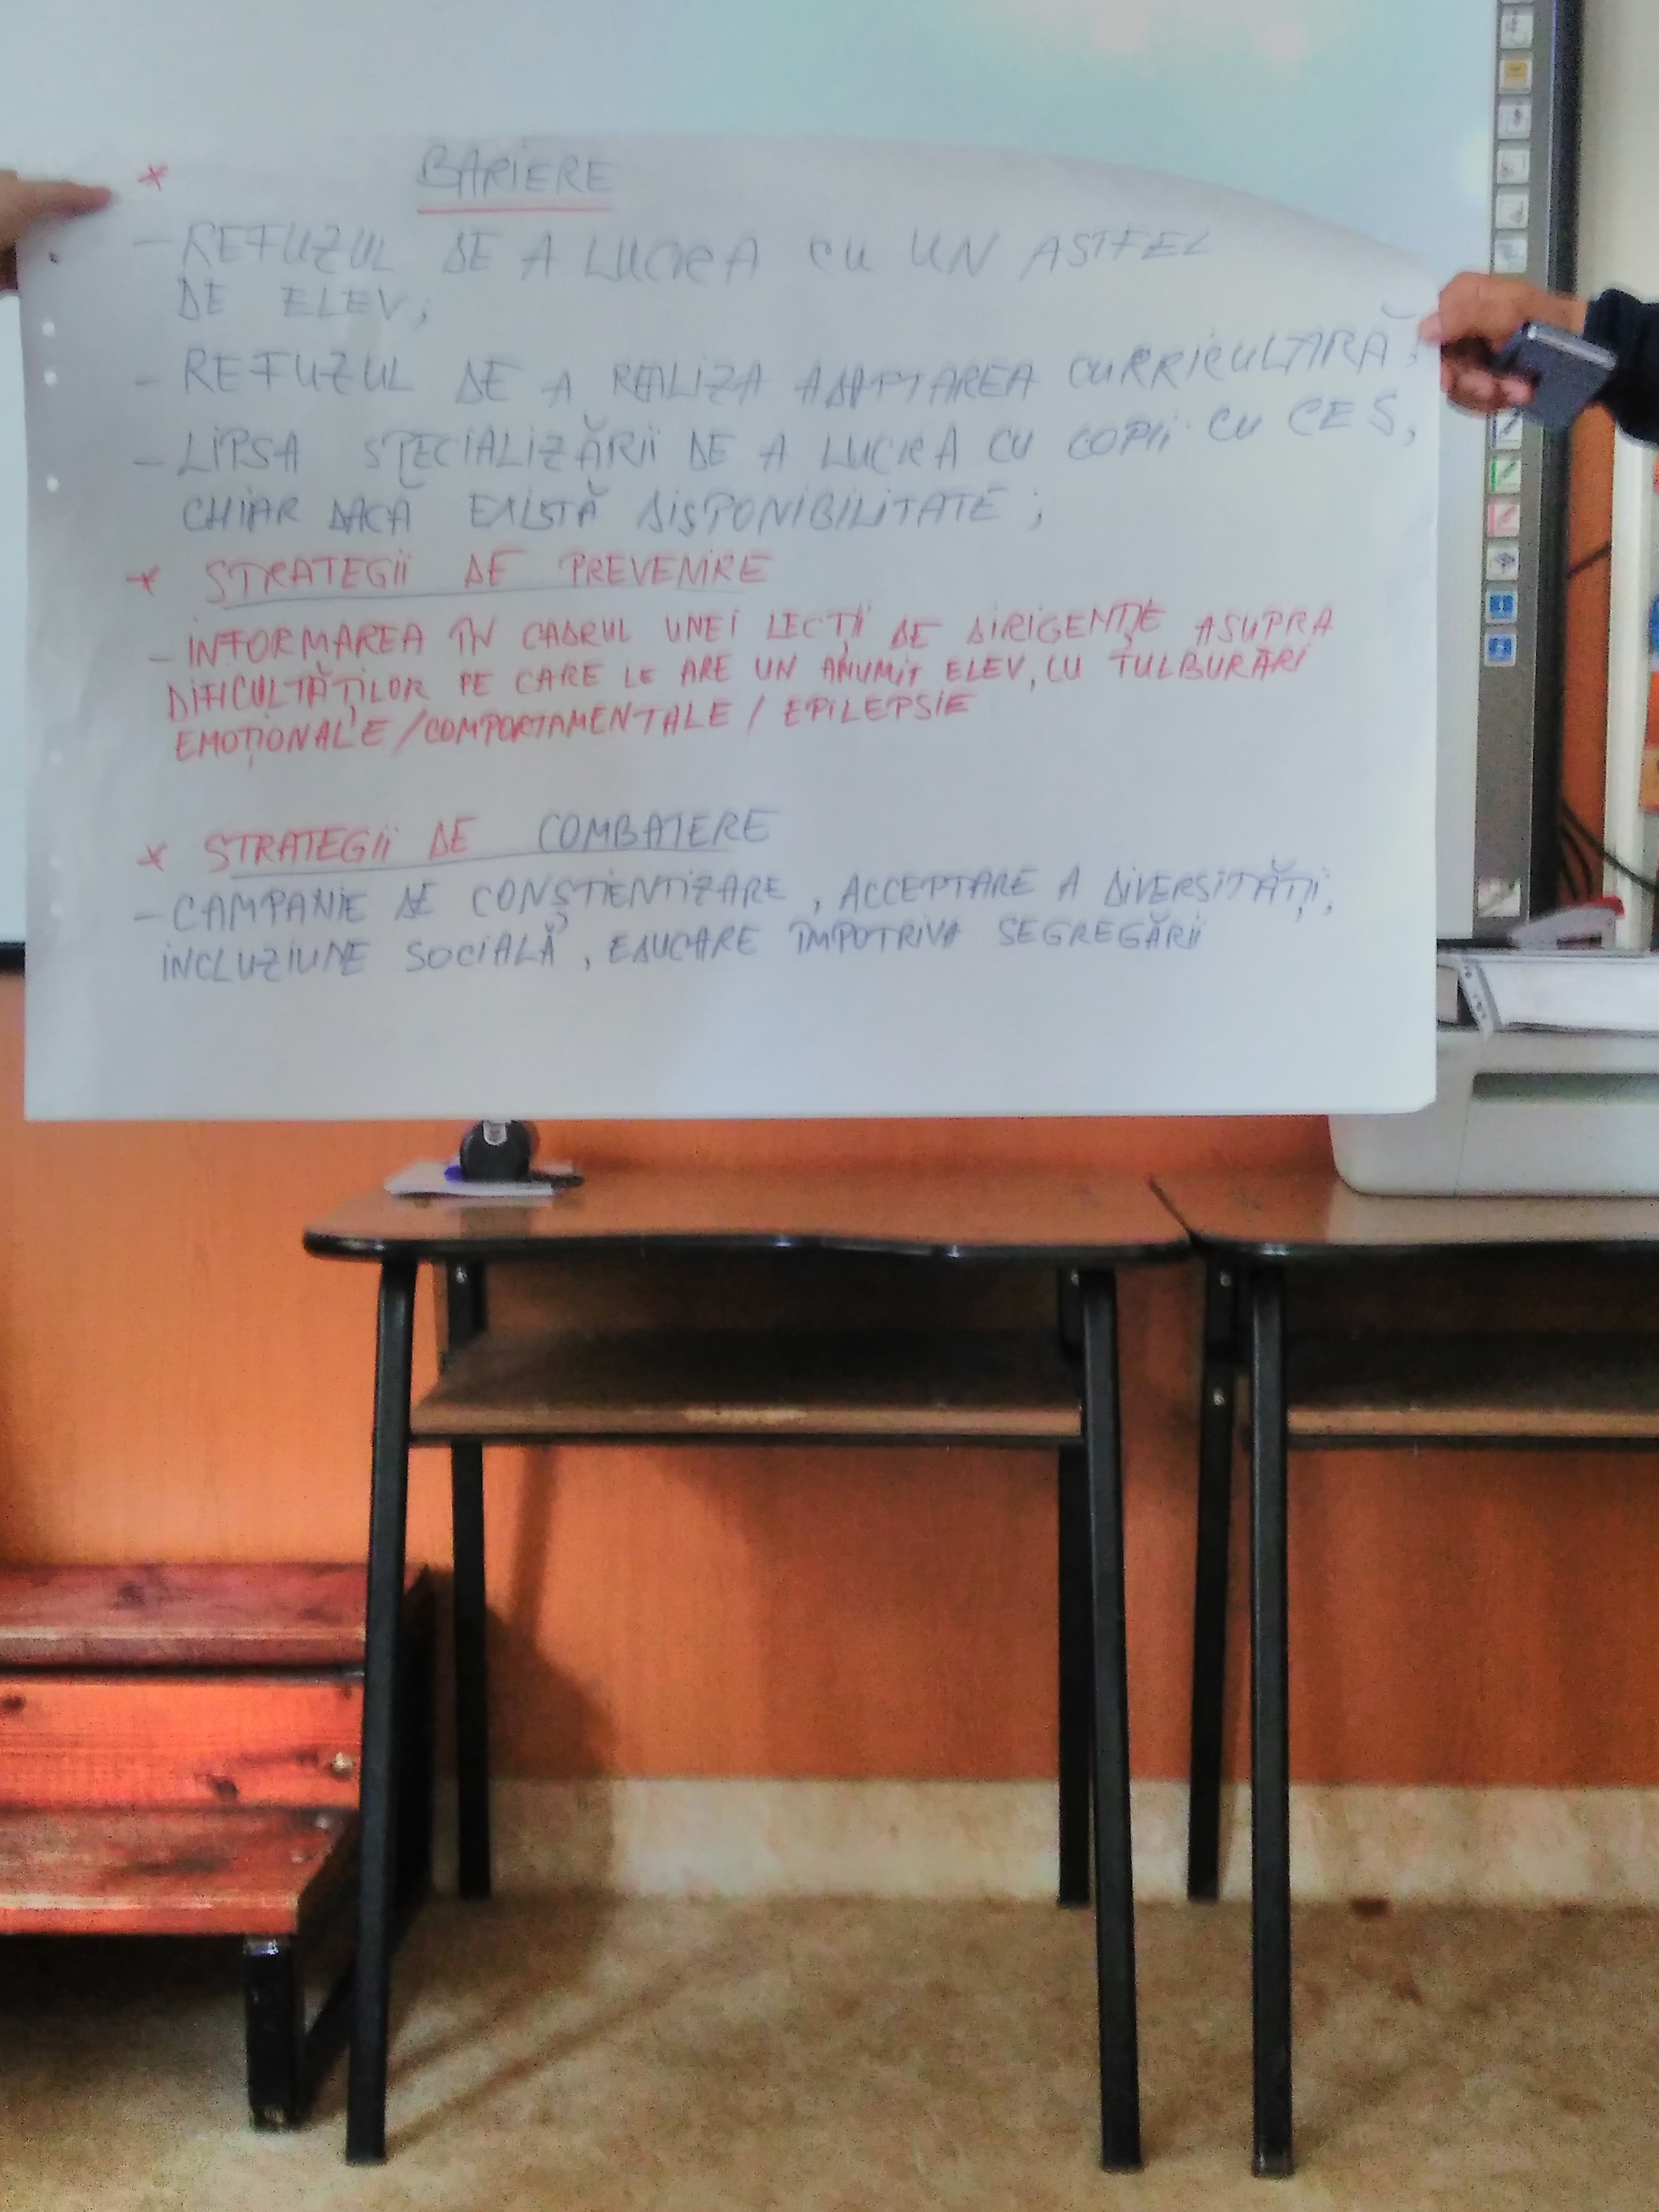 * BARIERE
- REFUZUL DE A LUCRA CU UN ASTFEL
DE ELEV;
- REFUZUL DE A REALIZA ADAPTAREA CURRICULARĂ;
- LIPSA SPECIALIZĂRII DE A LUCRA CU COPII CU CES,
CHIAR DACĂ EXISTĂ DISPONIBILITATE;
* STRATEGII DE PREVENIRE
- INFORMAREA ÎN CADRUL UNEI LECȚII DE DIRIGENȚIE ASUPRA
DIFICULTĂȚILOR PE CARE LE ARE UN ANUMIT ELEV, CU TULBURĂRI
EMOȚIONALE / COMPORTAMENTALE / EPILEPSIE
* STRATEGII DE COMBATERE
- CAMPANIE DE CONȘTIENTIZARE, ACCEPTARE A DIVERSITĂȚII,
INCLUZIUNE SOCIALĂ, EDUCARE ÎMPOTRIVA SEGREGĂRII